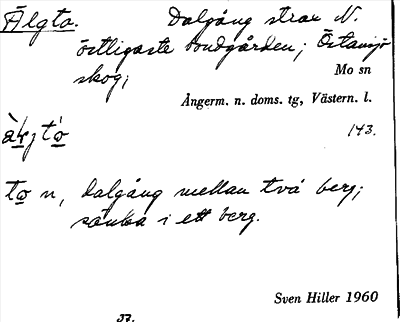 Älgto. Dalgång strax N.
östligaste bondgården; Östansjö
skog;
Mo sn
Ångerm. n. doms. tg, Västern. l.
143.
to n, dalgång mellan två berg;
sänka i ett berg.
Sven Hiller 1960